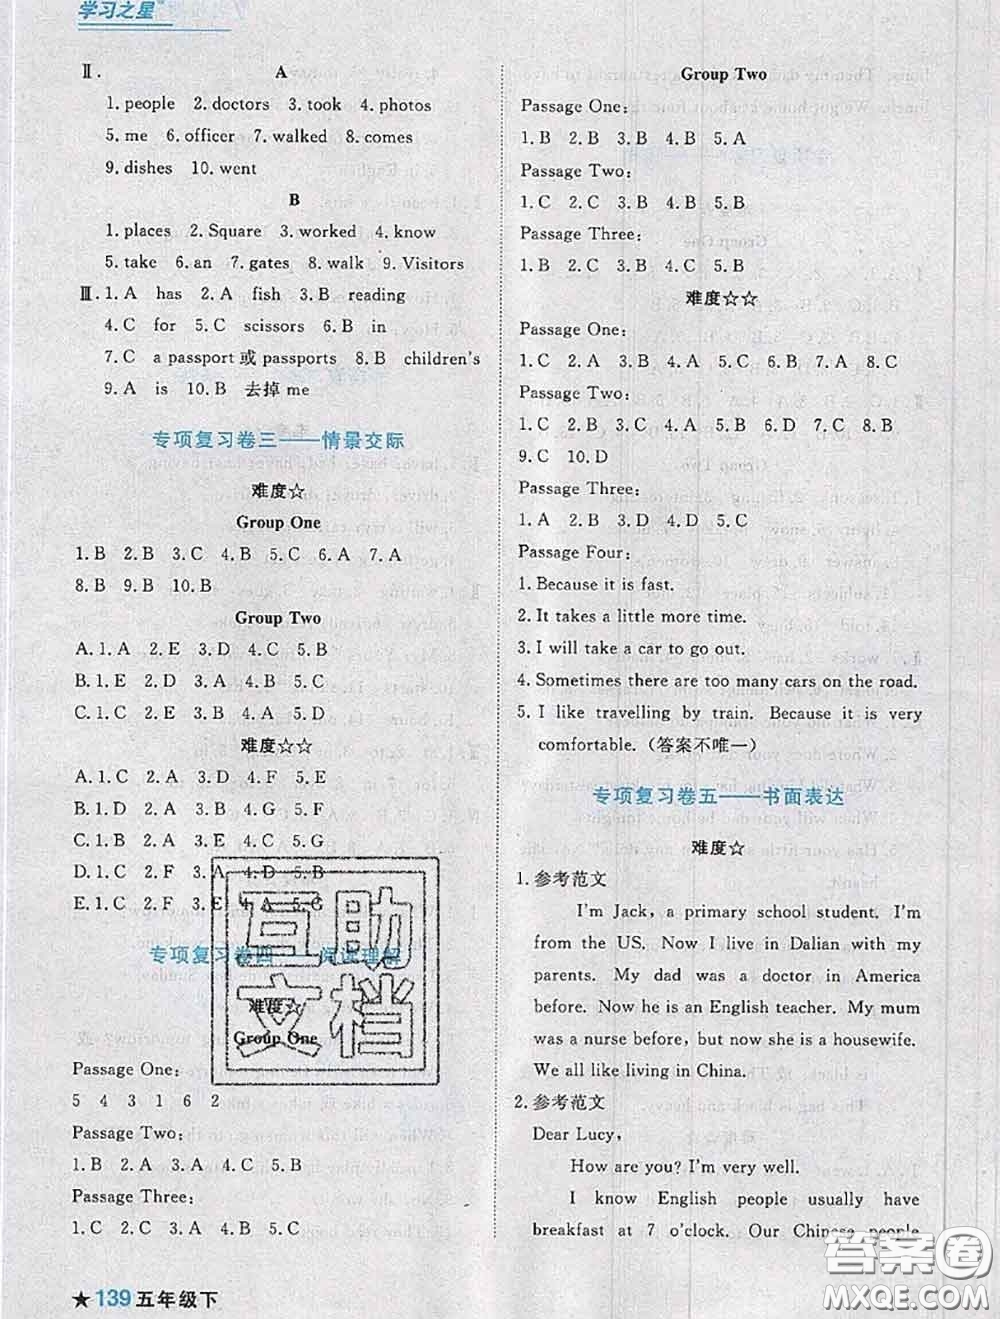 学习之星
Ⅱ. A
1. people 2. doctors 3. took 4. photos
5. me 6. officer 7. walked 8. comes
9. dishes 10. went
B
1. places 2. Square 3. worked 4. know
5. take 6. an 7. gates 8. walk 9. Visitors
Ⅲ. 1. A has 2. A fish 3. B reading
4. C for 5. C scissors 6. B in
7. C a passport 或 passports 8. B children's
9. A is 10. B 去掉 me
专项复习卷三——情景交际
难度☆
Group One
1. B 2. B 3. C 4. B 5. C 6. A 7. A
8. B 9. B 10. B
Group Two
A. 1. A 2. E 3. D 4. C 5. B
B. 1. E 2. D 3. A 4. B 5. C
C. 1. C 2. E 3. B 4. A 5. D
难度☆☆
A. 1. C 2. A 3. D 4. F 5. E
B. 1. C 2. A 3. B 4. G 5. F
C. 1. B 2. A 3. E 4. C 5. G
D. 1. C 2. F 3. A 4. D 5. B
E. 1. C 2. F 3. E 4. A 5. G
专项复习卷四——阅读理解
难度☆
Group One
Passage One:
5 4 3 1 6 2
Passage Two:
1. B 2. A 3. A 4. C 5. B
Passage Three:
1. C 2. C 3. A 4. B 5. C
★ 139 五年级下
Group Two
Passage One:
1. B 2. B 3. B 4. B 5. A
Passage Two:
1. C 2. C 3. B 4. B 5. B
Passage Three:
1. B 2. B 3. C 4. C 5. B
难度☆☆
Passage One:
1. C 2. A 3. B 4. A 5. C 6. B 7. A 8. C
Passage Two:
1. C 2. B 3. D 4. A 5. C 6. D 7. C 8. B
9. C 10. D
Passage Three:
1. A 2. B 3. D 4. D 5. C
Passage Four:
1. Because it is fast.
2. It takes a little more time.
3. I will take a car to go out.
4. Sometimes there are too many cars on the road.
5. I like travelling by train. Because it is very
comfortable. (答案不唯一)
专项复习卷五——书面表达
难度☆
1. 参考范文
I'm Jack, a primary school student. I'm
from the US. Now I live in Dalian with my
parents. My dad was a doctor in America
before. Now he is an English teacher. My mum
was a nurse before, but now she is a housewife.
We all like living in China.
2. 参考范文
Dear Lucy,
How are you? I'm very well.
I know English people usually have
breakfast at 7 o'clock. Our Chinese people
互助
文档
答案圈
MXQE.COM